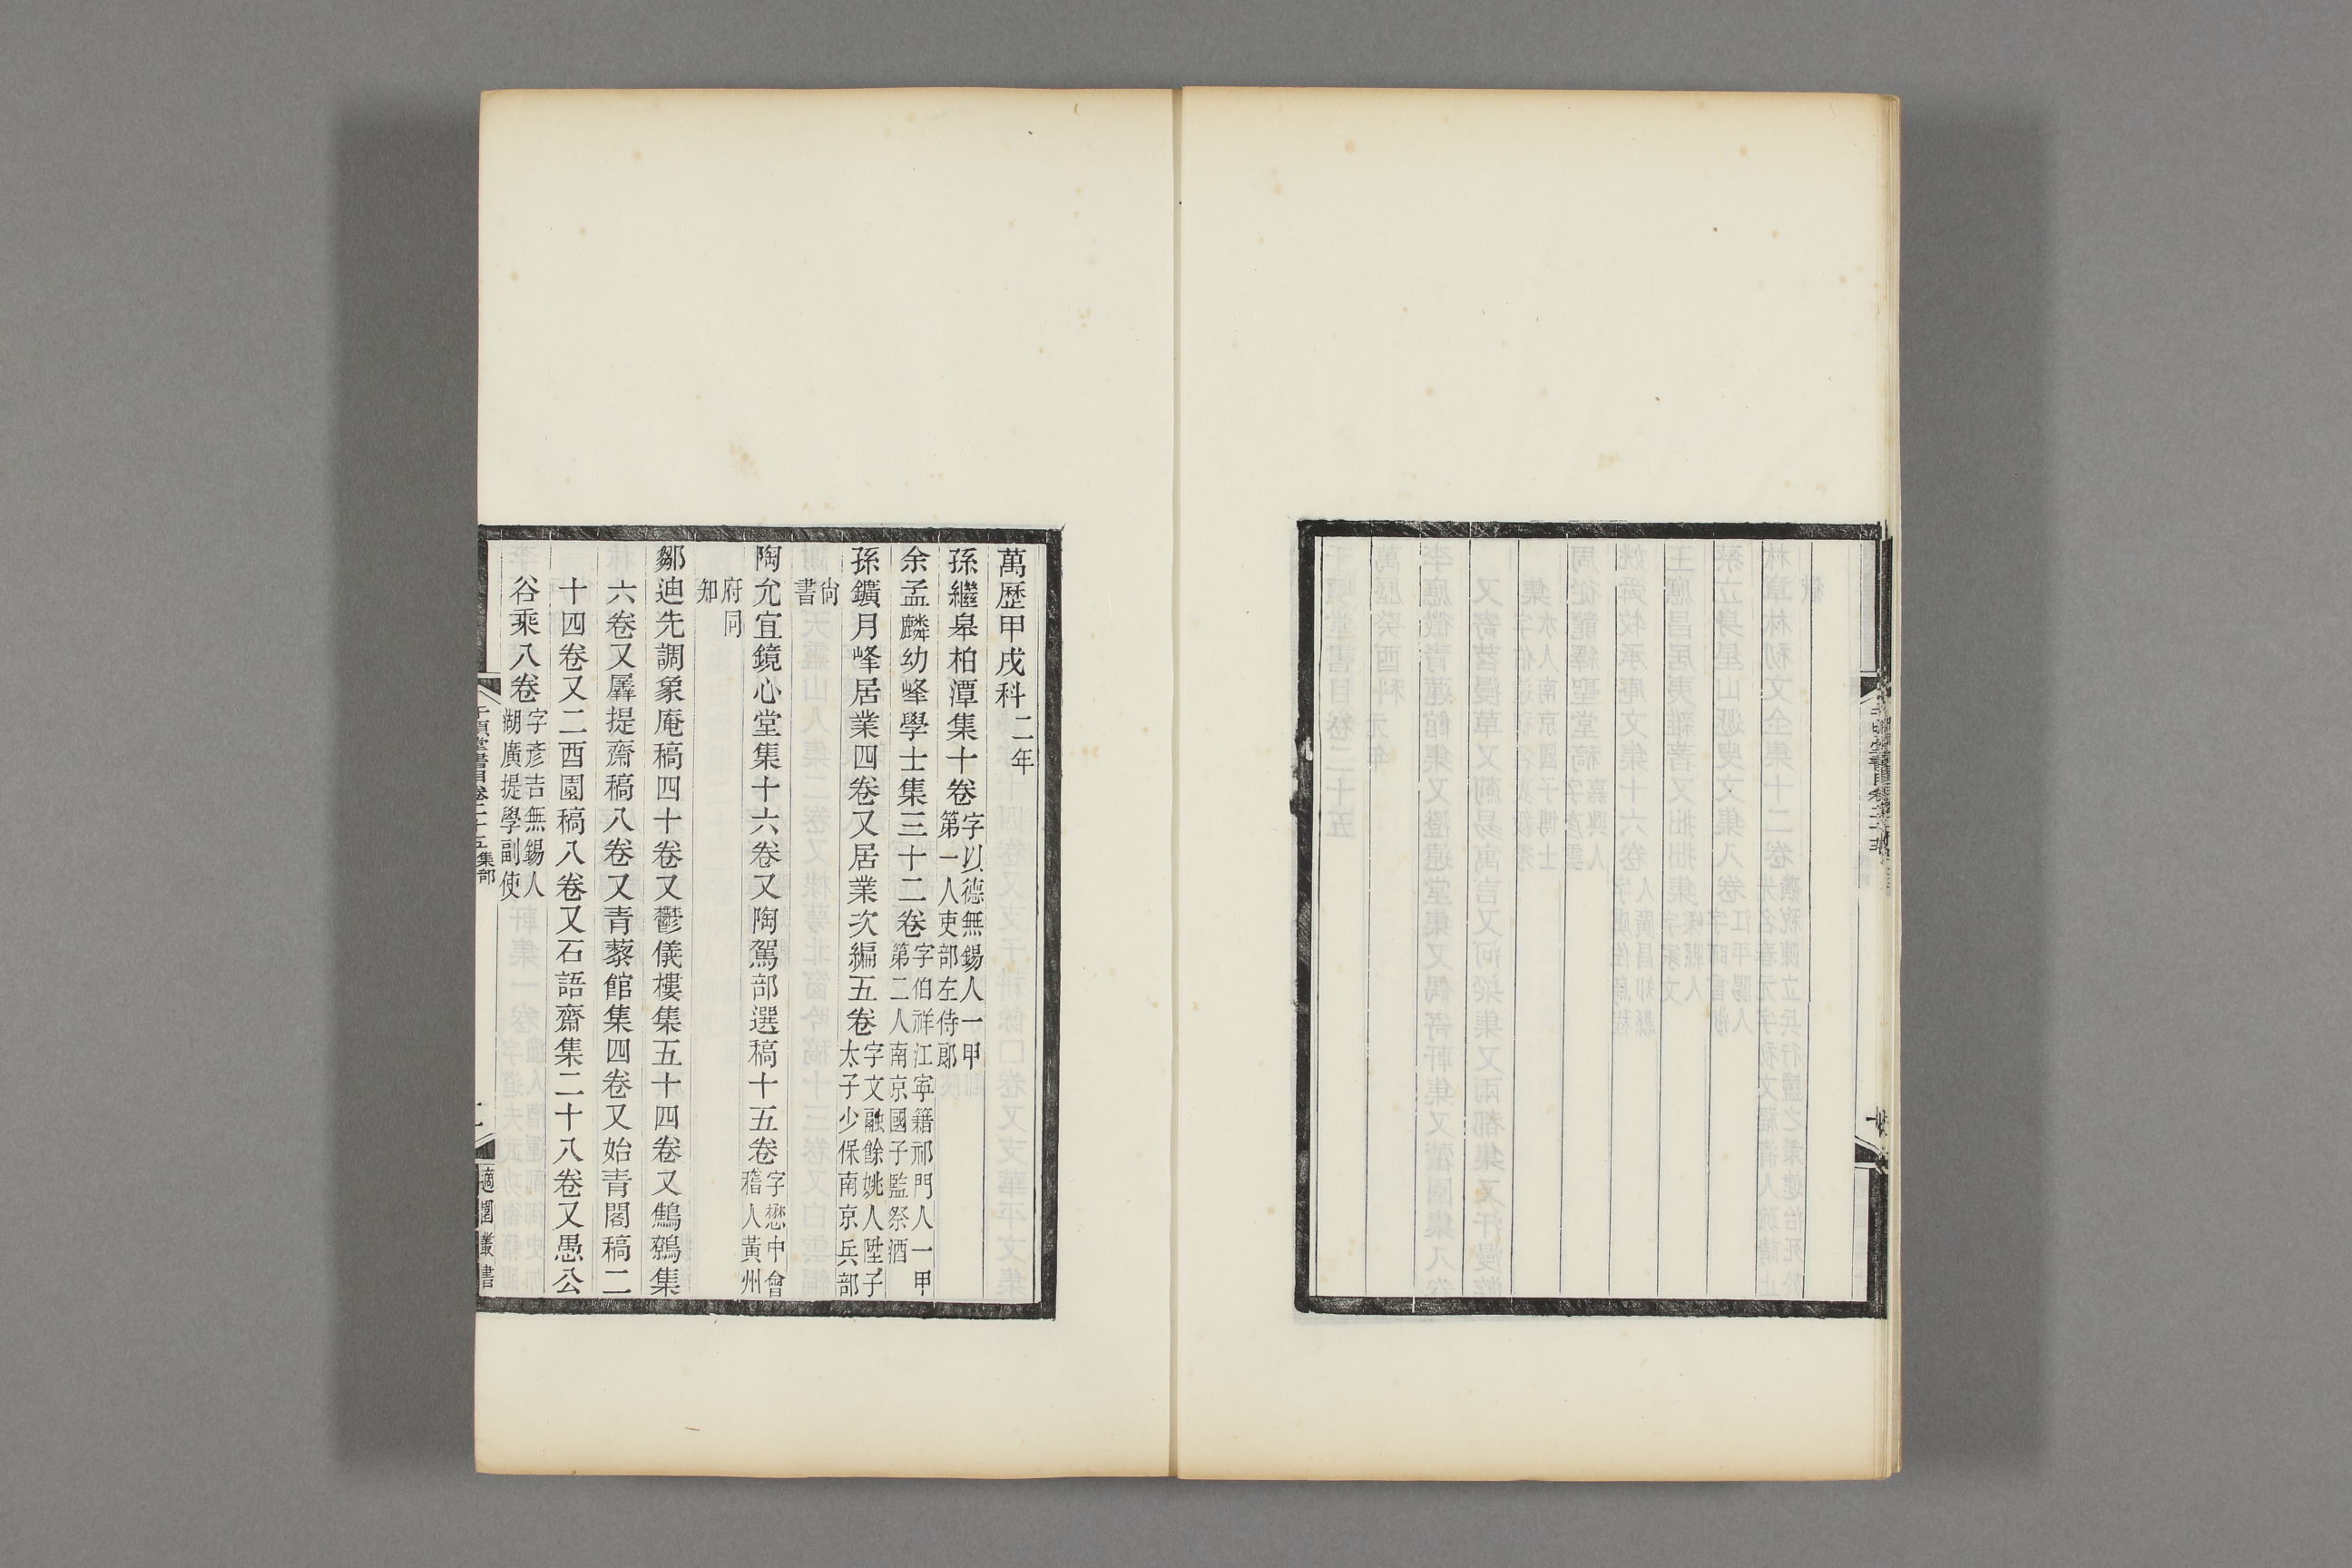 萬歷甲戌科二年
孫繼皋柏潭集十卷字以德無錫人一甲第一人吏部左侍郎
余孟麟幼峰學士集三十二卷字伯祥江寧籍祁門人一甲第二人南京國子監祭酒
孫鑛月峰居業四卷又居業次編五卷字文融餘姚人陞子太子少保南京兵部
尙書
陶允宜鏡心堂集十六卷又陶駕部選稿十五卷字懋中會稽人黃州
府同知
鄒迪先調象庵稿四十卷又鬱儀樓集五十四卷又鷦鷯集
六卷又羼提齋稿八卷又青藜館集四卷又始青閣稿二
十四卷又二酉園稿八卷又石語齋集二十八卷又愚公
谷乘八卷字彥吉無錫人湖廣提學副使
千頃堂書目卷二十五集部
適園叢書